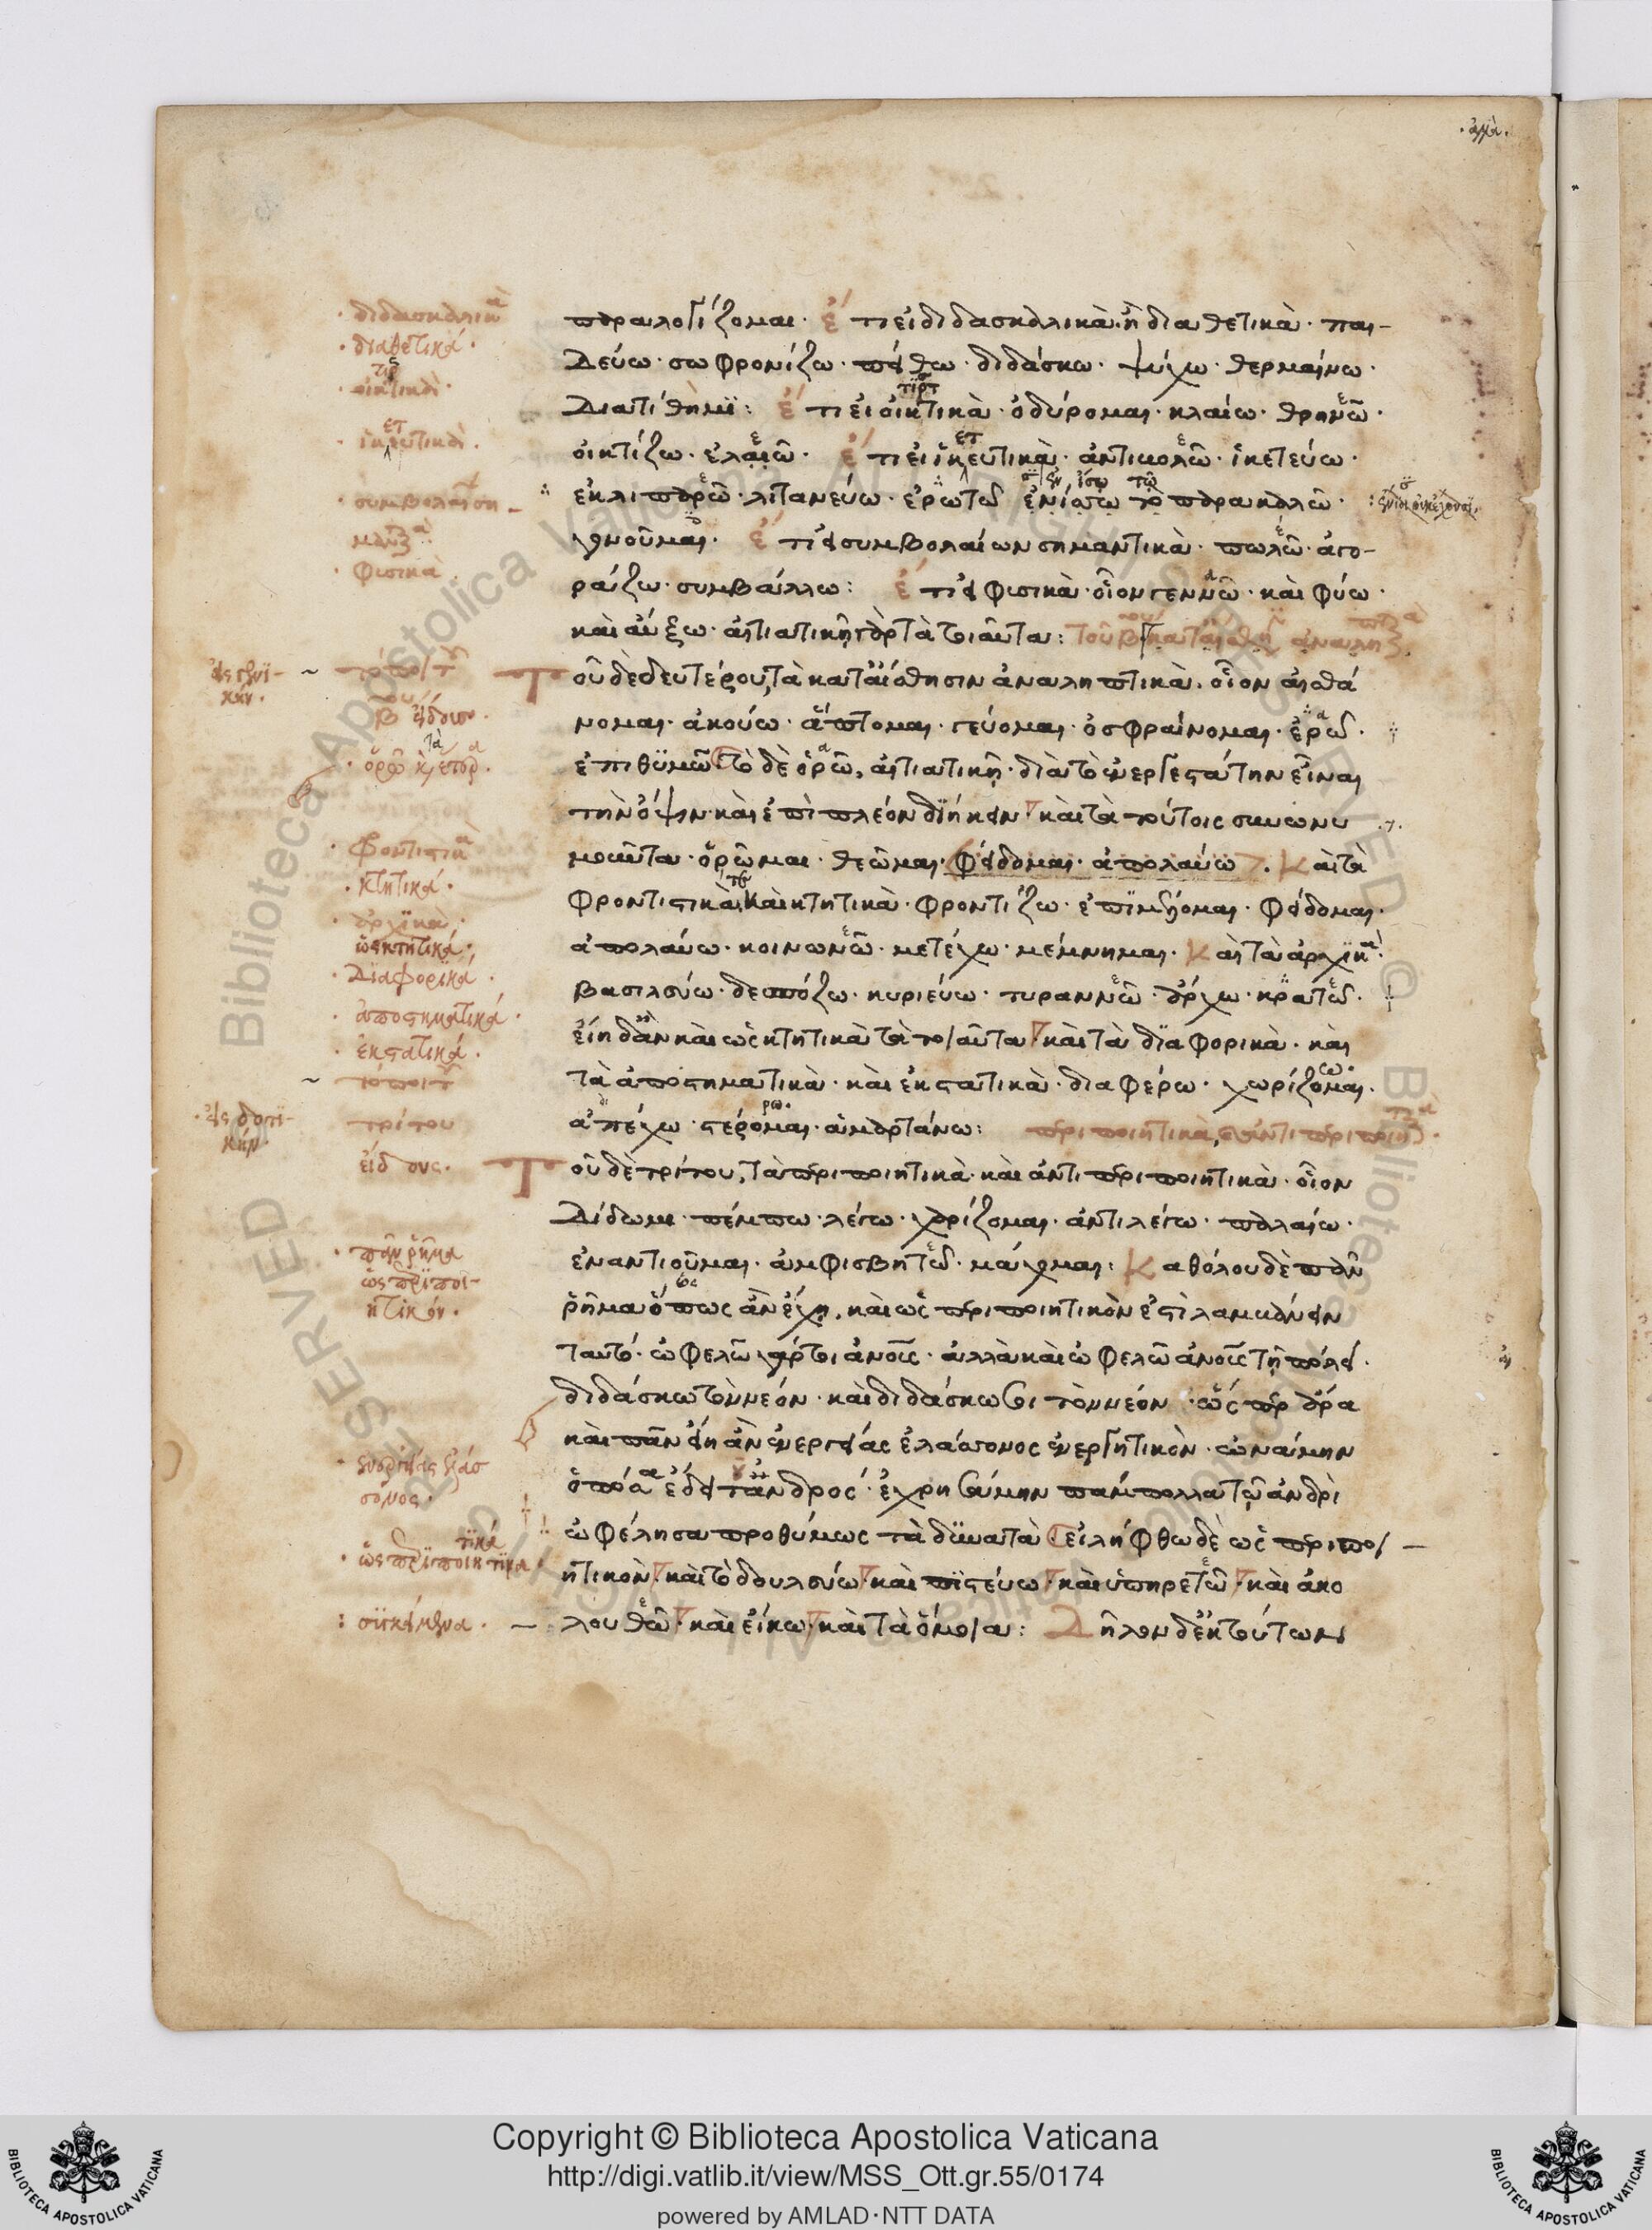 παραλογίζομαι· ἔτι εἰ διδασκαλικὰ· ἢ διαθετικὰ· παι-
δεύω· σωφρονίζω· πείθω· διδάσκω· ψύχω· θερμαίνω·
διατίθημι: ἔτι εἰ οἰκτικὰ· ὀδύρομαι· κλαίω· θρηνῶ·
οἰκτίζω· ἐλαιῶ· ἔτι εἰ ἱκευτικὰ· ἀντιβολῶ· ἱκετεύω·
ἐκλιπαρῶ· λιτανεύω· ἐρωτῶ τὸ παρακαλῶ·
χνοῦμαι· ἔτι εἰ συμβολαίων σημαντικὰ· πωλῶ· ἀγο-
ράζω· συμβάλλω: ἔτι εἰ φυσικὰ· οἷον γεννῶ· καὶ φύω·
καὶ αὔξω· αἰτιατικῇ γὰρ τὰ τοιαῦτα:
Τοῦ δὲ δευτέρου, τὰ κατ' αἴσθησιν ἀναληπτικὰ· οἷον αἰσθά
νομαι· ἀκούω· ἅπτομαι· γεύομαι· ὀσφραίνομαι· ἐρῶ·
ἐπιθυμῶ τὸ δὲ ὁρῶ, αἰτιατικῇ· διὰ τὸ ἐνεργεστάτην εἶναι
τὴν ὄψιν· καὶ ἐπὶ πλέον διήκειν καὶ τὰ τούτοις συνωνυ
μοῦντα· ὁρῶμαι· θεῶμαι· φείδομαι· ἀπολαύω· καὶ τὰ
φροντιστικὰ καὶ κτητικὰ· φροντίζω· ἐπιμελήομαι· φείδομαι·
ἀπολαύω· κοινωνῶ· μετέχω· μέμνημαι· καὶ τὰ ἀρχικὰ·
βασιλεύω· δεσπόζω· κυριεύω· τυραννῶ· ἄρχω· κρατῶ·
εἴη δ' ἂν καὶ ὡς κτητικὰ τὰ τοιαῦτα καὶ τὰ διαφορικὰ· καὶ
τὰ ἀποστηματικὰ· καὶ ἐκστατικὰ· διαφέρω· χωρίζομαι·
ἀπέχω· στέρομαι· ἁμαρτάνω:
Τοῦ δὲ τρίτου, τὰ περιποιητικὰ· καὶ ἀντιπεριποιητικὰ· οἷον
δίδωμι· πέμπω· λέγω· χαρίζομαι· ἀντιλέγω· παλαίω·
ἐναντιοῦμαι· ἀμφισβητῶ· μάχομαι: καθόλου δὲ πᾶν
ῥῆμα ὅπως ἂν ἔχῃ, καὶ ὡς περιποιητικὸν ἔστι λαμβάνειν
ταυτό· ὠφελῶ ἀνοις· ἀλλὰ καὶ ὠφελῶ ἀνοις τῇ πόλει·
διδάσκω τὸν νέον· καὶ διδάσκω σοι τὸν νέον· ὥσπερ ἄρα
καὶ πᾶν εἴη ἂν ἐνεργείας ἐλάσσονος ἐνεργητικὸν· ὠναίμην
ὁπόσα ἔδει τἀνδρός· ἐχρησάμην πάμπολλα τῷ ἀνδρὶ
ὠφέλησα προθύμως τὰ δυνατὰ εἰλήφθω δὲ ὡς περιποι
ητικὸν καὶ τὸ δουλεύω καὶ πιστεύω καὶ ὑπηρετῶ καὶ ἀκο
λουθῶ καὶ εἴκω καὶ τὰ ὅμοια: Δῆλον δ' ἐκ τούτων
διδασκαλικὰ
διαθετικά·
φυσικὰ
φροντιστικὰ
κτητικά·
ἀρχικὰ·
ὡς κτητικά·
Διαφορικά·
ἀποστηματικά·
ἐκστατικά·
τρίτου
εἴδους·
πᾶν ῥῆμα
ὡς περιποι-
ητικόν·
Copyright © Biblioteca Apostolica Vaticana
http://digi.vatlib.it/view/MSS_Ott.gr.55/0174
powered by AMLAD·NTT DATA
BIBLIOTECA APOSTOLICA VATICANA
BIBLIOTECA APOSTOLICA VATICANA